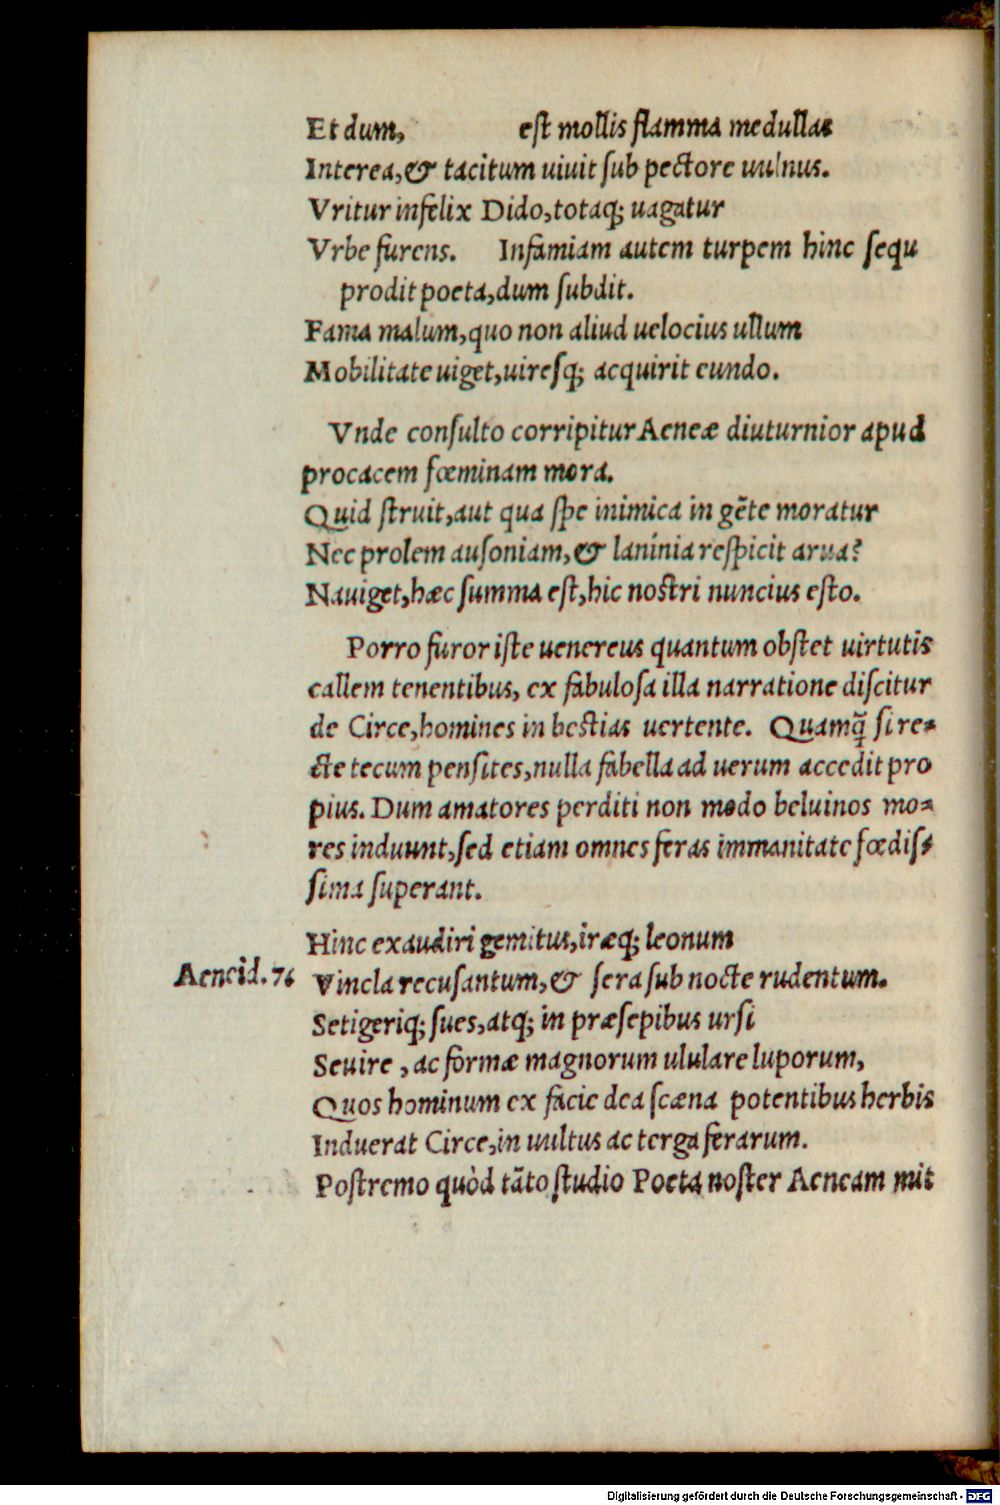 Et dum, est mollis flamma medullas
Interea,& tacitum uiuit ſub pectore uulnus.
Vritur infelix Dido,totaq; uagatur
Vrbe furens. Infamiam autem turpem hinc ſequ
prodit poeta,dum ſubdit.
Fama malum,quo non aliud uelocius ullum
Mobilitate uiget,uireſq; acquirit eundo.
Vnde conſulto corripitur Aeneæ diuturnior apud
procacem fœminam mora.
Quid ſtruit,aut qua ſpe inimica in gẽte moratur
Nec prolem auſoniam,& laninia reſpicit arua?
Nauiget,hæc ſumma eſt,hic noſtri nuncius eſto.
Porro furor iſte uenereus quantum obſtet uirtutis
callem tenentibus, ex fabuloſa illa narratione diſcitur
de Circe,homines in beſtias uertente. Quamq̃ ſi re-
cte tecum penſites,nulla fabella ad uerum accedit pro
pius. Dum amatores perditi non modo beluinos mo-
res induunt,ſed etiam omnes feras immanitate fœdiſ-
ſima ſuperant.
Hinc exaudiri gemitus,iræq; leonum
Aeneid.7. Vincla recuſantum,& ſera ſub nocte rudentum.
Setigeriq; ſues,atq; in præſepibus urſi
Seuire , ac formæ magnorum ululare luporum,
Quos hominum ex facie dea ſcæna potentibus herbis
Induerat Circe,in uultus ac terga ferarum.
Poſtremo quòd tãto ſtudio Poeta noſter Aeneam mit
Digitalisierung gefördert durch die Deutsche Forschungsgemeinschaft - DFG